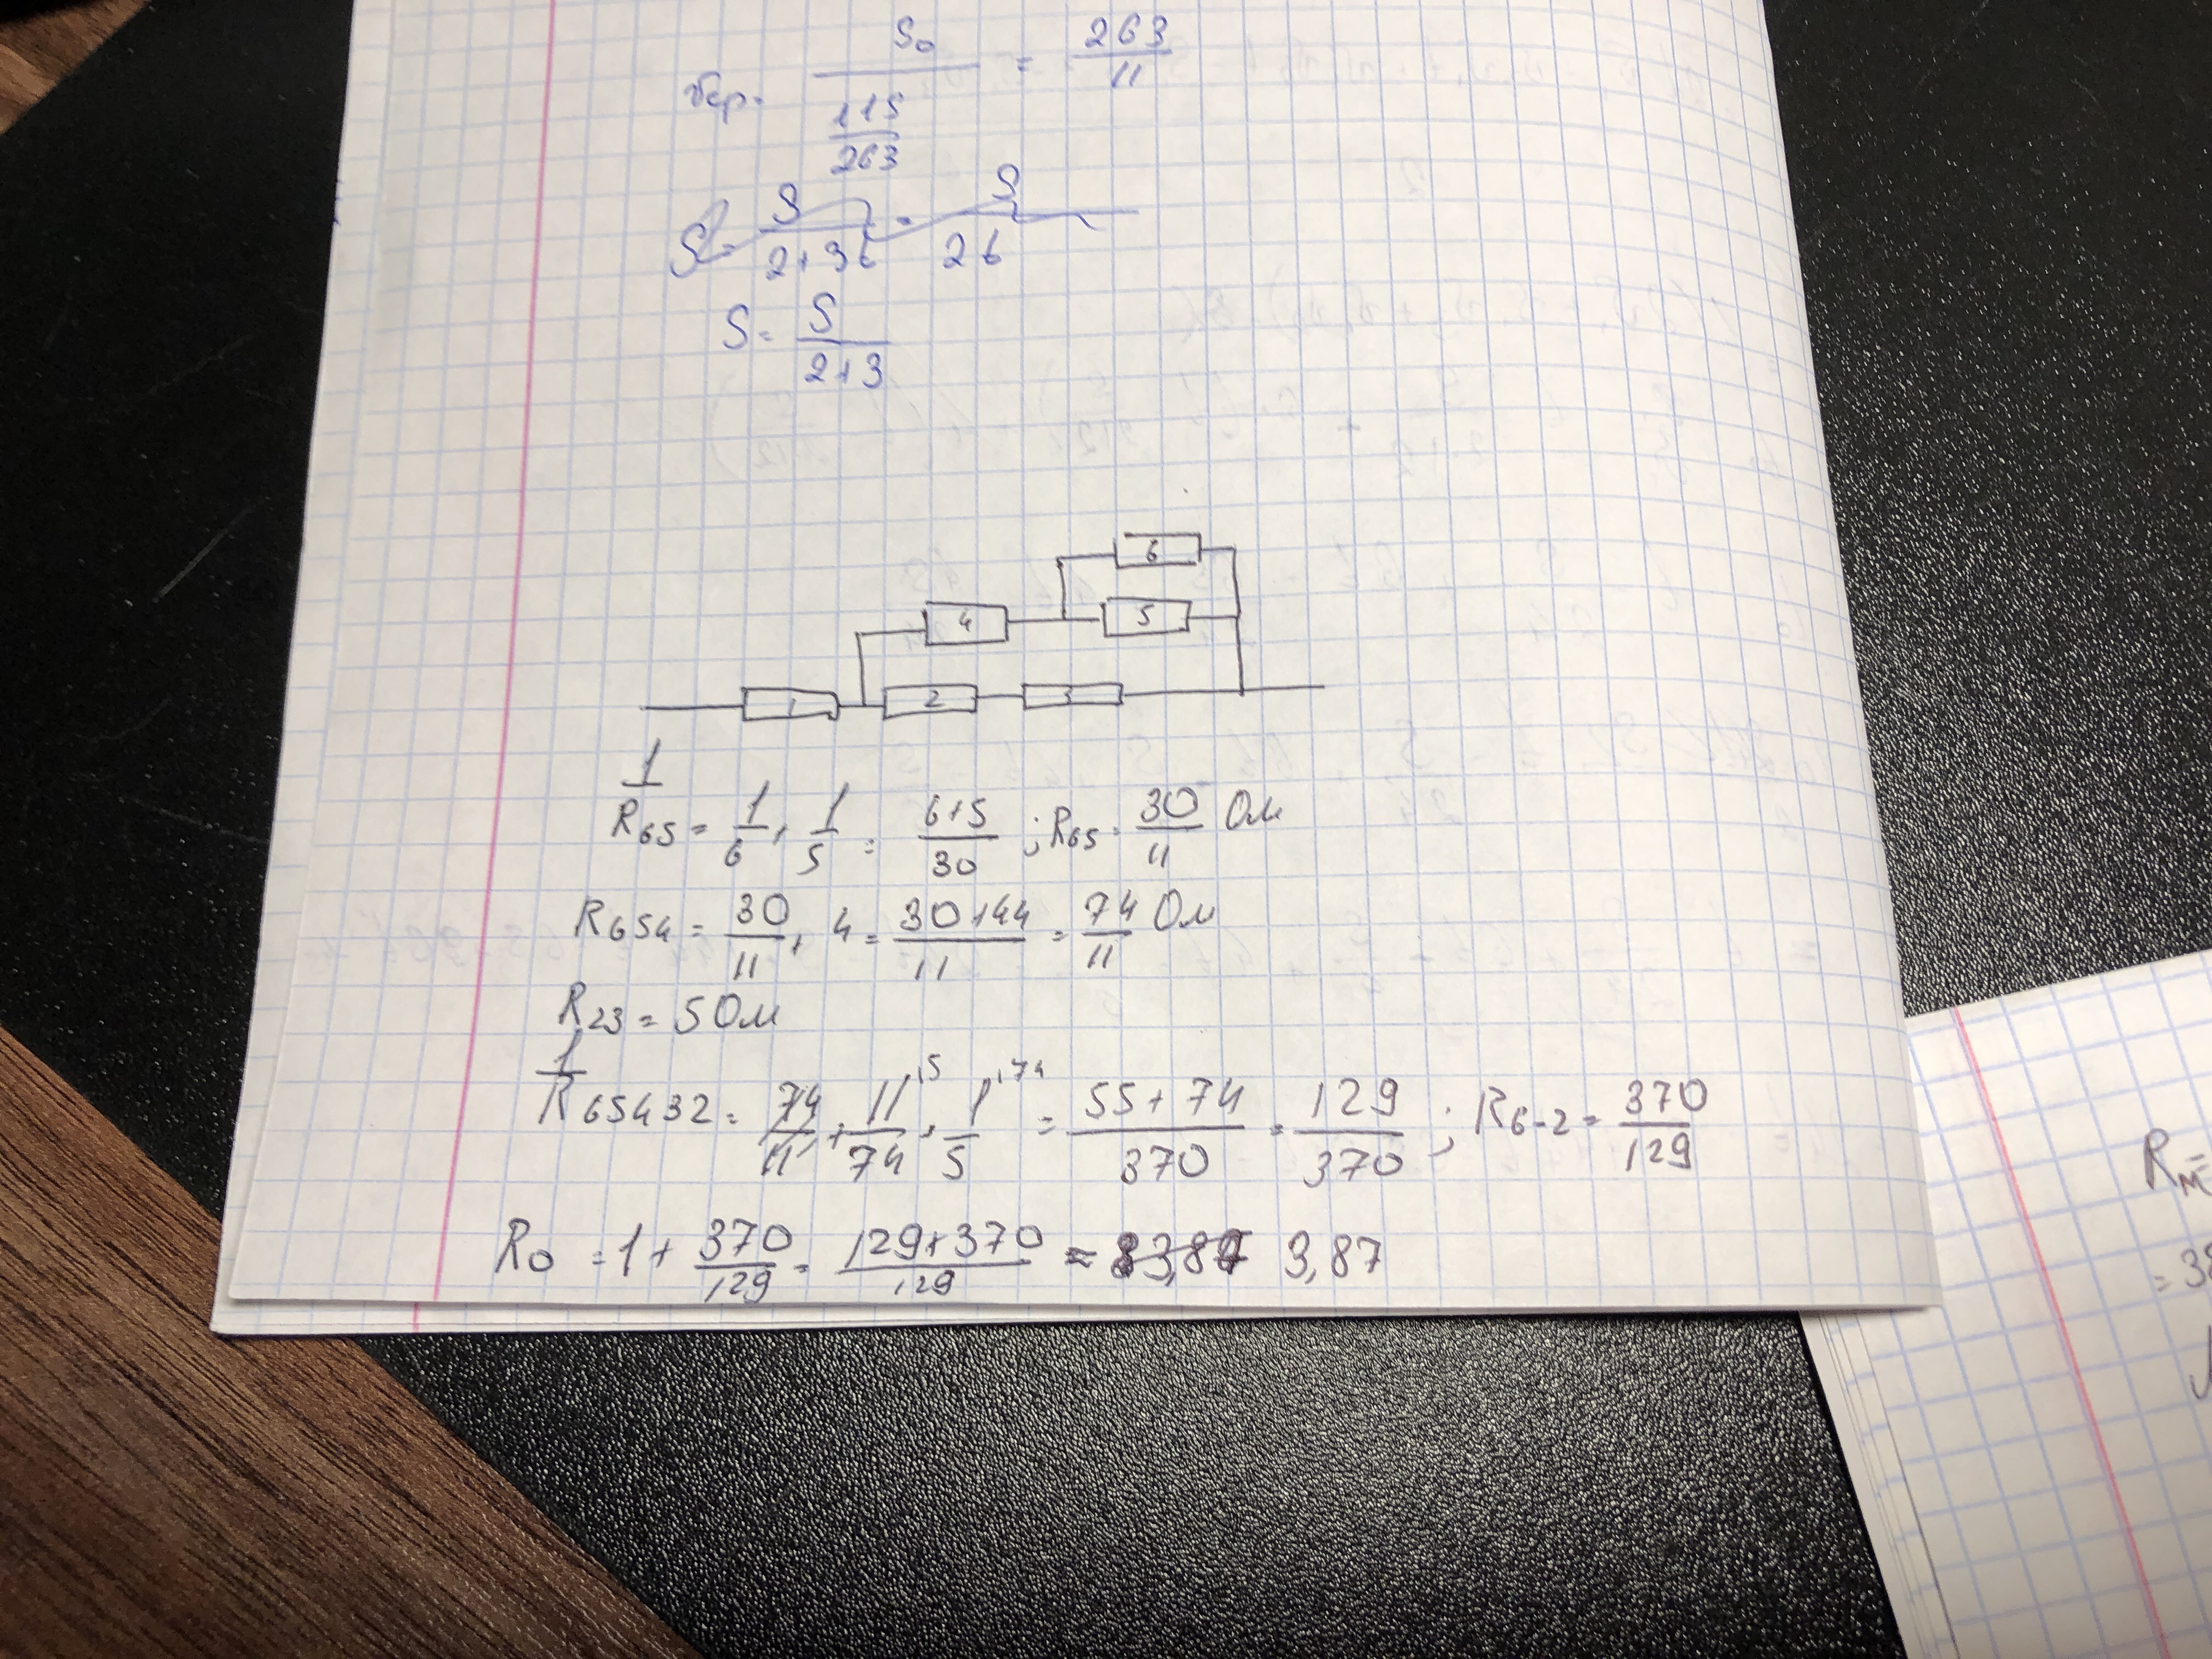 S₀ / (115/263) = 263/11
S = S/(2+3
S = S/(2+3)
6
4 5
1 2 3
1/R₆₅ = 1/6 + 1/5 = (6+5)/30 ; R₆₅ = 30/11 Ом
R₆₅₄ = 30/11 + 4 = (30+44)/11 = 74/11 Ом
R₂₃ = 5 Ом
1/R₆₅₄₃₂ = 74/11 + 11/74 ·5 + 1/5 ·74 = (55+74)/370 = 129/370 ; R₆₋₂ = 370/129
R₀ = 1 + 370/129 = (129+370)/129 ≈ 3,87
Rм =
= 38